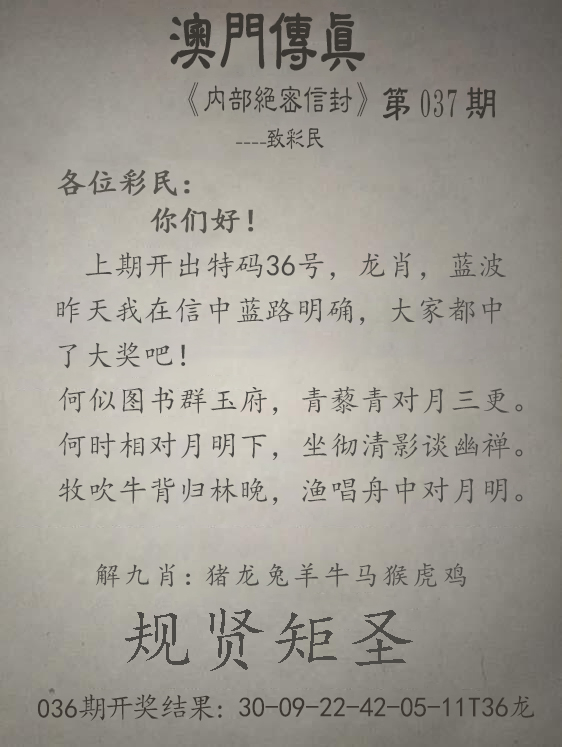 澳門傳真
《内部絕密信封》第037期
----致彩民
各位彩民：
你们好！
上期开出特码36号，龙肖，蓝波
昨天我在信中蓝路明确，大家都中
了大奖吧！
何似图书群玉府，青藜青对月三更。
何时相对月明下，坐彻清影谈幽禅。
牧吹牛背归林晚，渔唱舟中对月明。
解九肖：猪龙兔羊牛马猴虎鸡
规贤矩圣
036期开奖结果：30-09-22-42-05-11T36龙